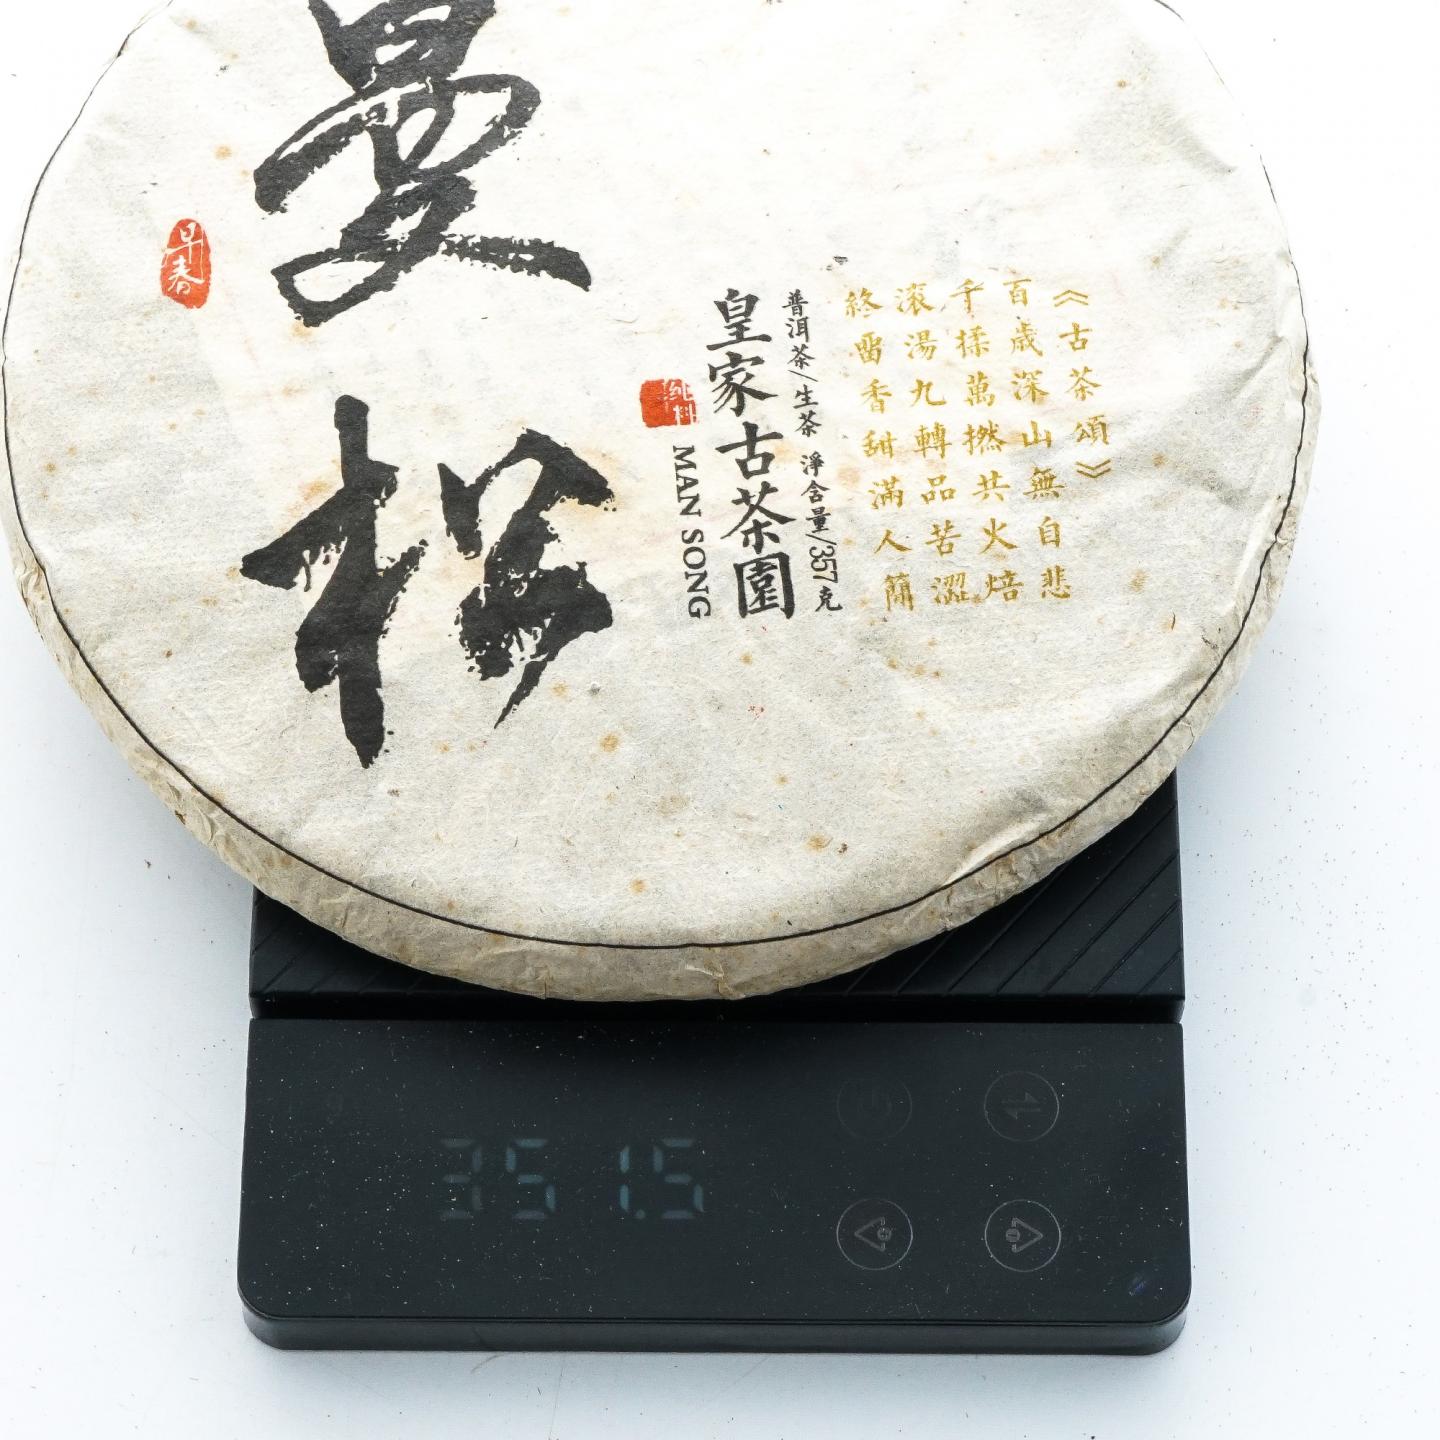 曼松
早春
纯料
MAN SONG
皇家古茶園
普洱茶/生茶 淨含量/357克
《古茶頌》
百歲深山無自悲
千揉萬撚共火焙
滾湯九轉品苦澀
終留香甜滿人間
351.5